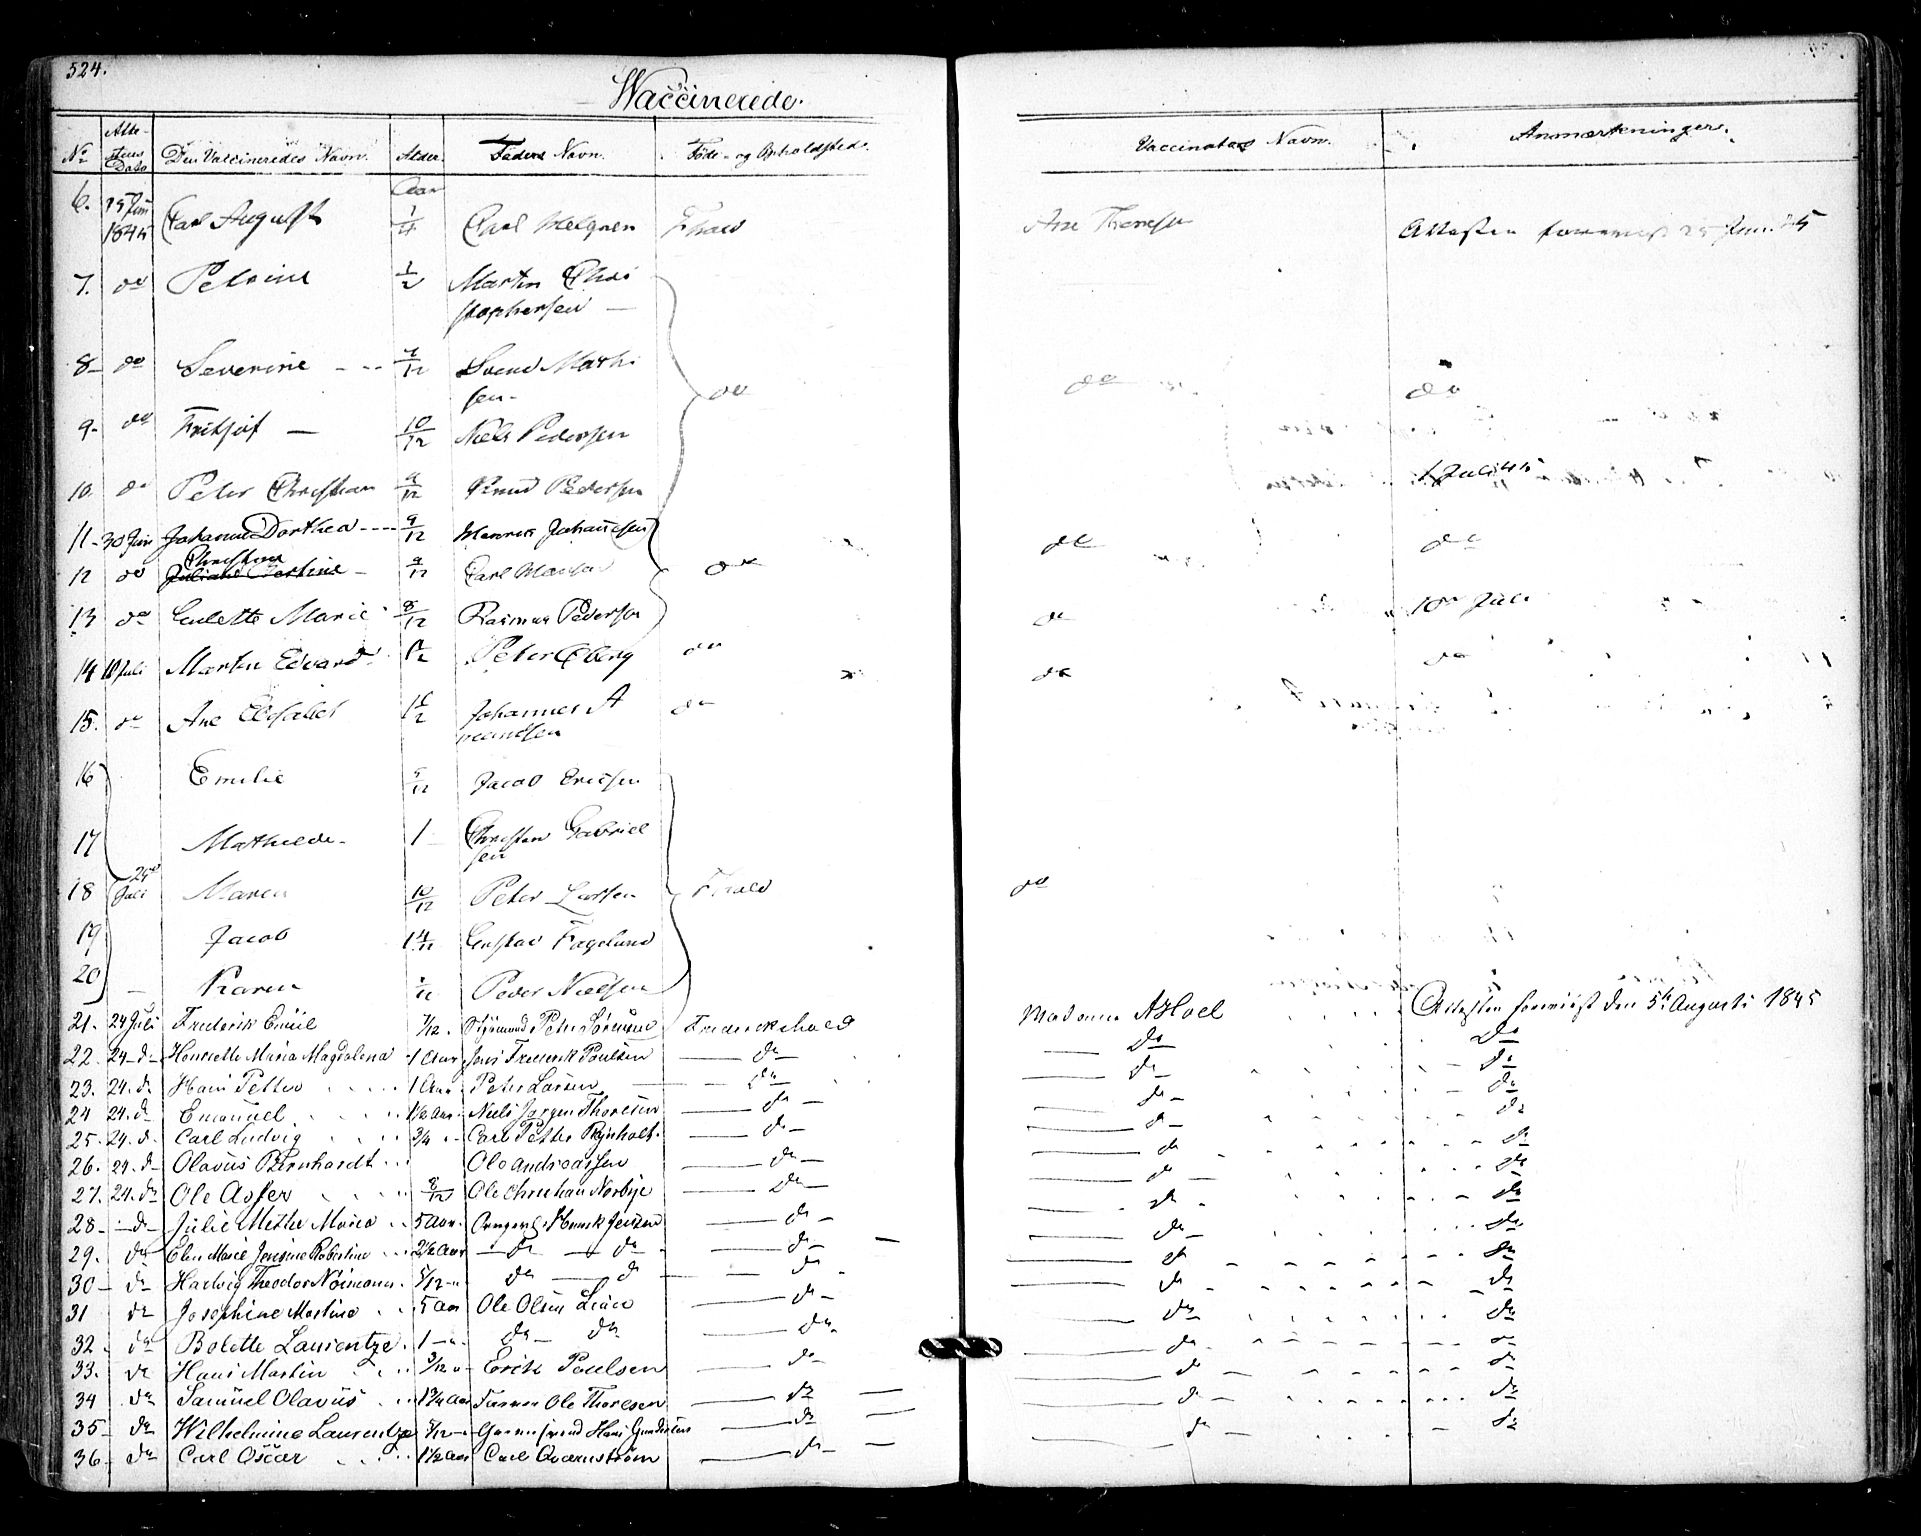 524.
Vaccinerede.
No Attestens Dato Den Vaccineredes Navn. Alder. Faders Navn. Føde- og Opholdssted. Vaccinators Navn. Anmærkninger.
Aar
6. 25 Juni 1845 Carl August Carl Fhald Ane Attesten 25 Juni 45
7. do Petrine 1/2 Martin Chri
stophersen —
8 - do Severine - - - 7/12 Svend Mathi
sen - do do do
9. do Fritjof — 10/12 Niels Pedersen
10. do Peter Christian 9/12 Knud Pedersen 1 Juli 45
11 - 30 Juni Johanne Dorthea - - - - 9/12 Johannesen do do
Christine
12 do Juliane - 9/12 Carl do
13 do Marie 8/12 Rasmus Pedersen do 10de Juli
14 10 Juli Martin Edvard Peter do do do
15. do Ane Elisabet Johannes A
mundsen do
16 Emilie 5/12 Jacob Ericsen
17 Mathilde - 1 Christen Gabriel
sen
18 24de Juli Maren 10/12 Peter Larsen Fhald do
19 Jacob 1 4/12 Gustav Fagelund
20 Karen Peder Nielsen
21. 24 Juli Frederik Emil 7/12. Peter Sørensen Fredrikshald Madame A Hoel Attesten foreviist den 5te August 1845
22. 24 - d - Henriette Maria Magdalena 1 Aar Jens Frederik Poulsen — do — do do
23. 24. do Hans Petter 1 Aar Peter Larsen — do — do do
24 24. d - Emanuel. 1 1/2 Aar. Niels Jørgen Thoresen — do — do do
25. 24. d. Carl Ludvig 3/4 - Carl Petter Rejnholt. — do — do do
26. 24. d - Olavus Bernhardt Ole Andreassen — do — do do
27. 24. do Ole Asser 8/12 Ole Christian Norbye — do — do do
28 - - d - Julie Methe Maria 5 Aar. Henrik Jensen — do — do do
29. do Elen Marie Jensine Robertine 2 1/2 Aar — do — do — do — do do
30 - do Hartvig Theodor 5/12 - do — d — do — do do
31 do Josephine Martine 5 Aar Ole Olsen — do — do do
32. do Bolette Laurentze. 1 - do — do — do — do do
33. do Hans Martin 3/12 Erik Poulsen — do — do do
34 do Samuel Olavus 1 3/4 Aar Ole Thoresen — do — do do
35 - do Wilhelmine Laurentze 5/12 - Hans Gundersen — do — do do
36 - do Carl Oscar 1 1/2 Aar Carl Qvarnstrøm — do —